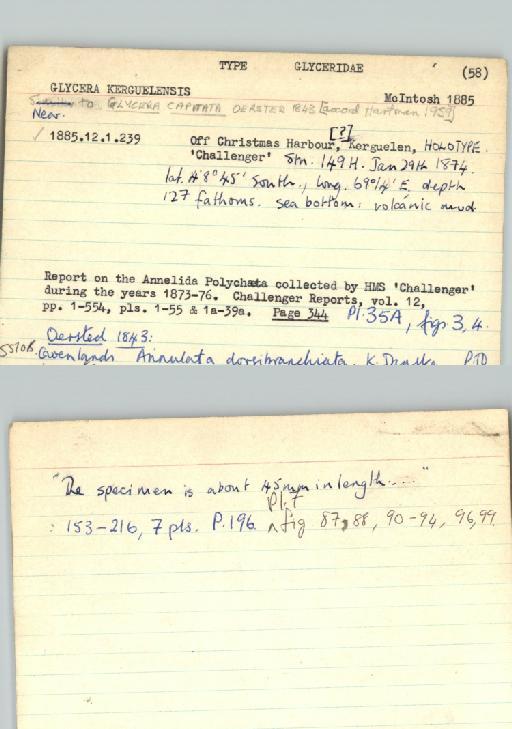 TYPE GLYCERIDAE (58)
GLYCERA KERGUELENSIS McIntosh 1885
Similar to GLYCERA CAPITATA OERSTED 1843 [accord Hartman 1959]
Near.
✓ 1885.12.1.239 Off Christmas Harbour, [?] Kerguelen, HOLOTYPE.
'Challenger' Stn. 149H. Jan 29th 1874.
lat. 48°45' South., long. 69°14' E. depth
127 fathoms. sea bottom: volcanic mud
Report on the Annelida Polychæta collected by HMS 'Challenger'
during the years 1873-76. Challenger Reports, vol. 12,
pp. 1-554, pls. 1-55 & 1a-39a. Page 344 Pl. 35A, figs 3, 4.
Oersted 1843:
Annulata dorsibranchiata. K. PTO
"The specimen is about 45mm in length...."
: 153-216, 7 pls. P.196. Pl. 7 fig 87, 88, 90-94, 96, 99.